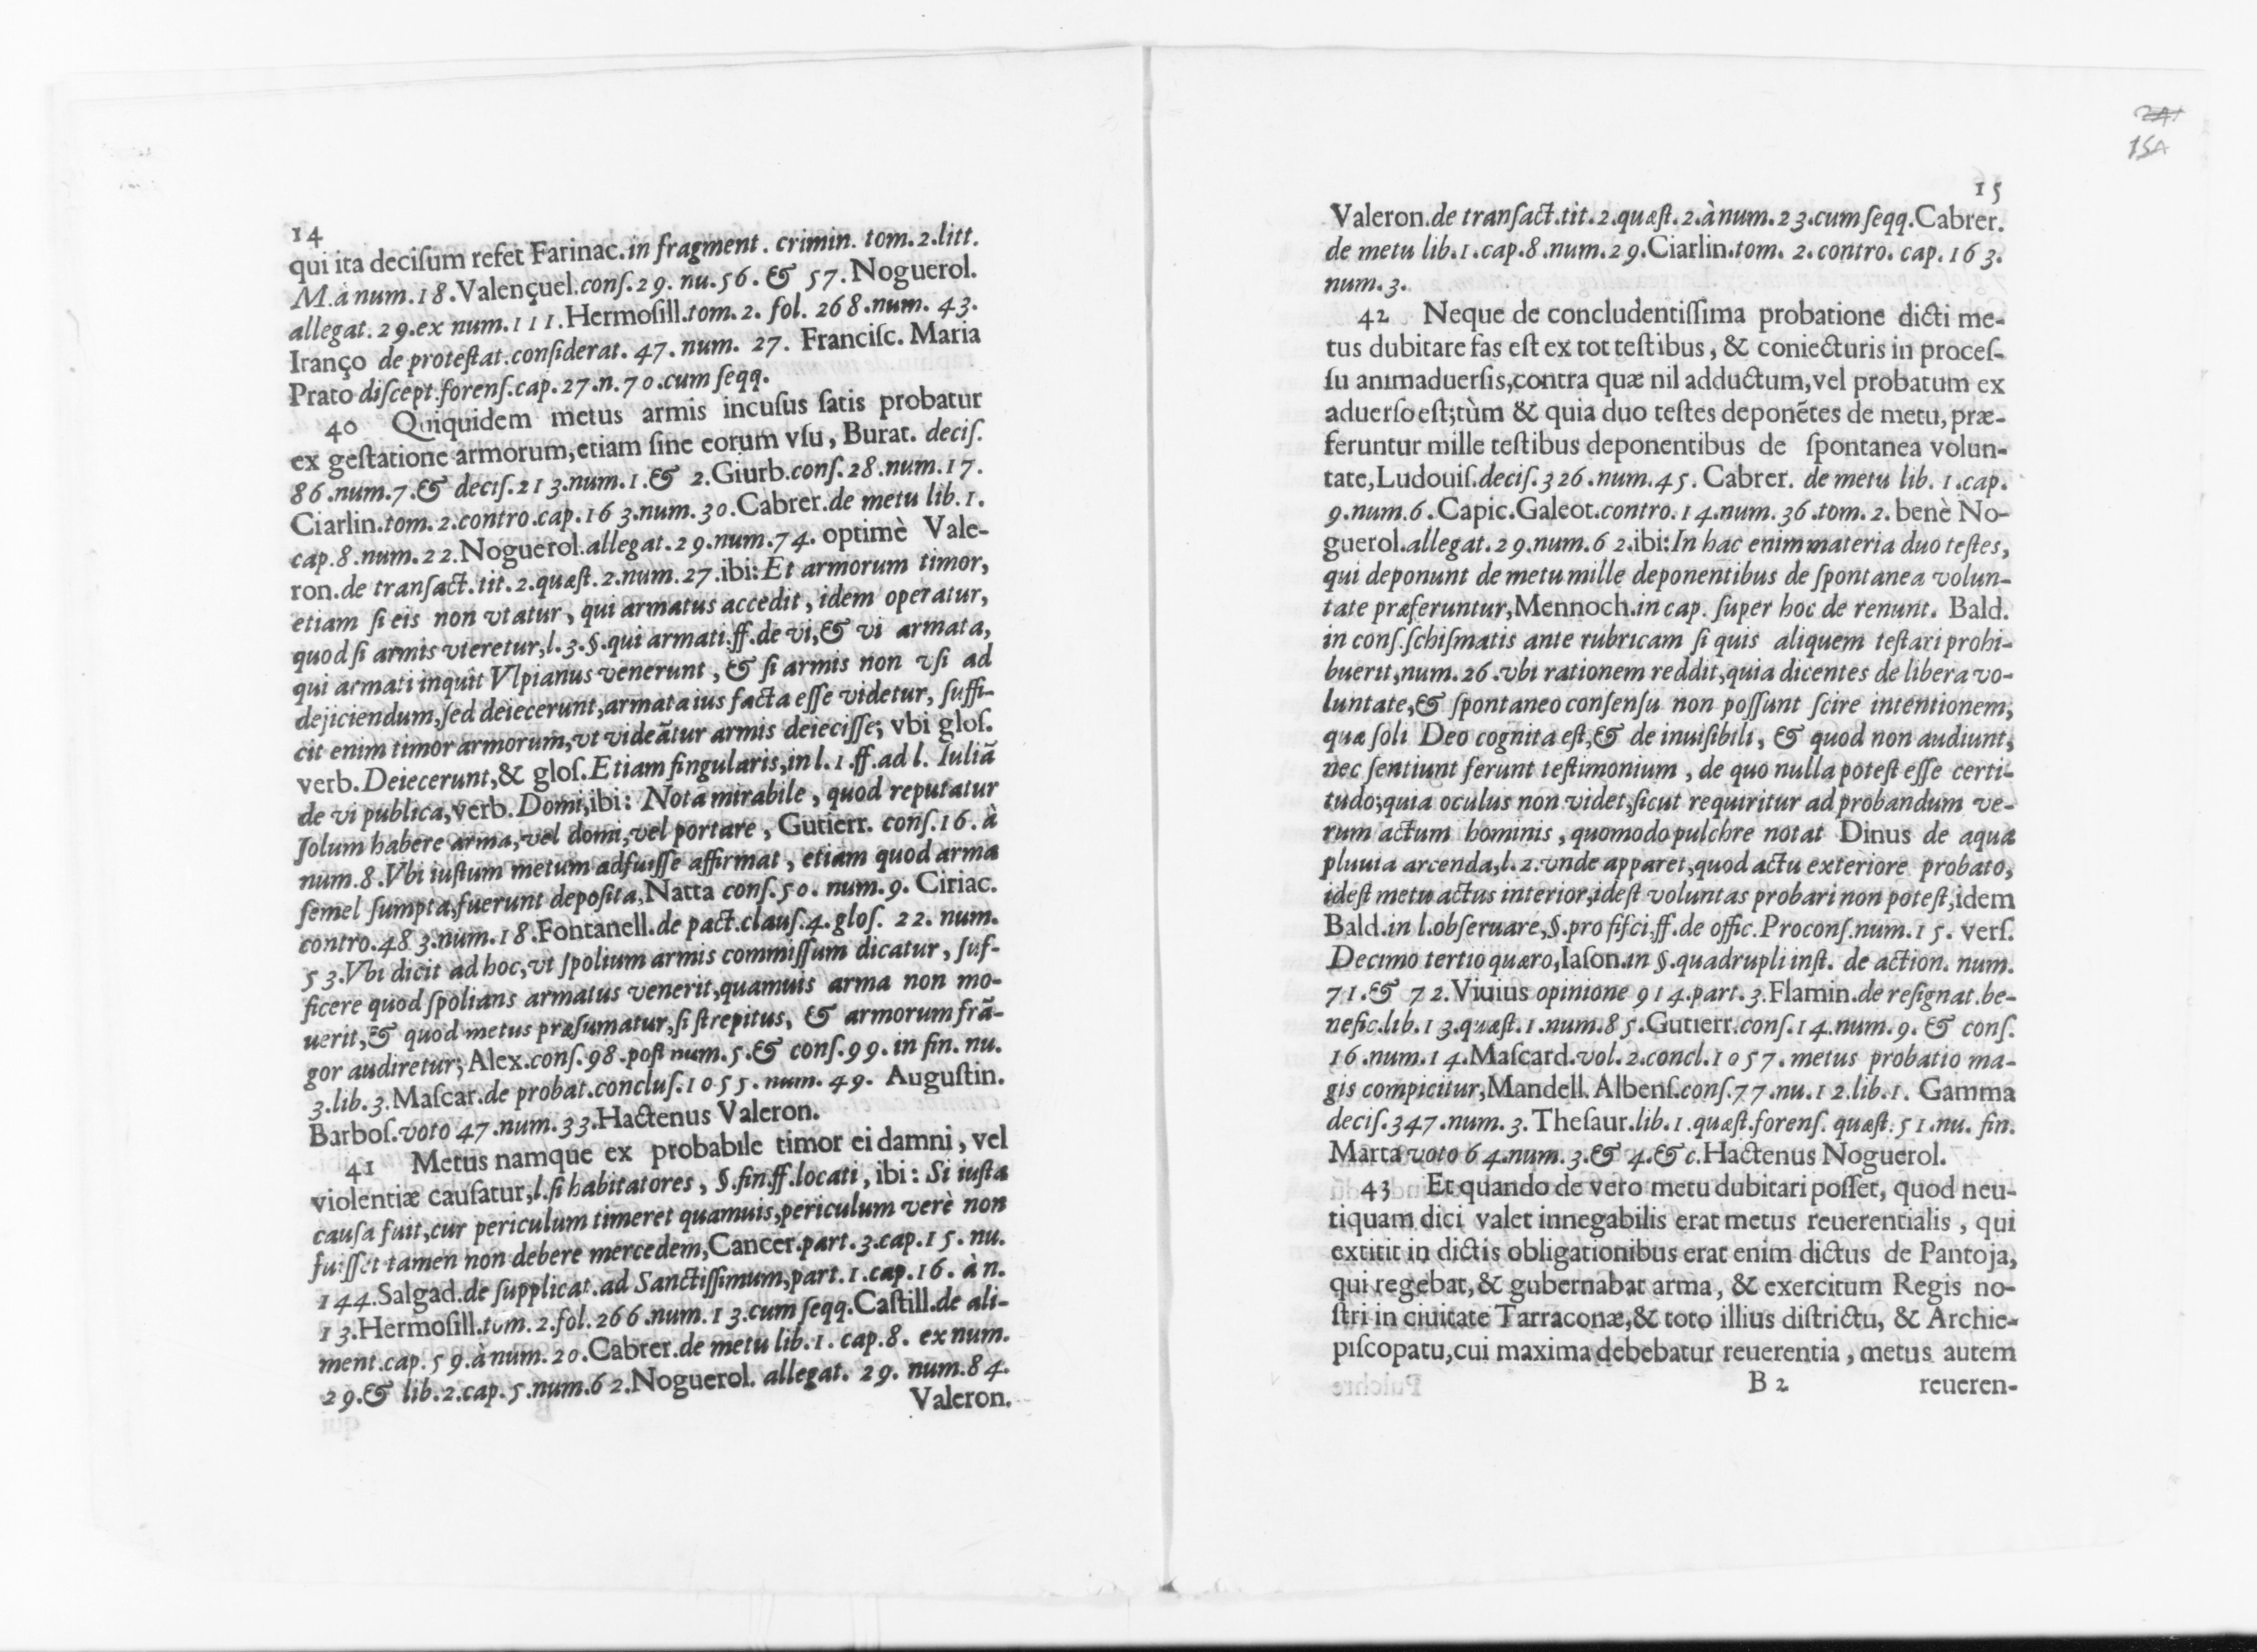 14
qui ita deciſum refet Farinac.in fragment. crimin. tom.2.litt.
M.à num.18.Valençuel.conſ.29. nu.56. & 57.Noguerol.
allegat.29.ex num.111.Hermoſill.tom.2. fol. 268.num. 43.
Iranço de proteſtat.conſiderat. 47. num. 27. Franciſc. Maria
Prato diſcept.forenſ.cap.27.n.70.cum ſeqq.
40 Quiquidem metus armis incuſus ſatis probatur
ex geſtatione armorum,etiam ſine eorum vſu, Burat. deciſ.
86.num.7.& deciſ.213.num.1.& 2.Giurb.conſ.28.num.17.
Ciarlin.tom.2.contro.cap.163.num.30.Cabrer.de metu lib.1.
cap.8.num.22.Noguerol.allegat.29.num.74. optimè Vale-
ron.de tranſact.tit.2.quæſt.2.num.27.ibi:Et armorum timor,
etiam ſi eis non vtatur, qui armatus accedit, idem operatur,
quod ſi armis vteretur,l.3.§.qui armati.ff.de vi,& vi armata,
qui armati inquit Vlpianus venerunt, & ſi armis non vſi ad
dejiciendum,ſed deiecerunt,armata ius facta eſſe videtur, ſuffi-
cit enim timor armorum,vt videãtur armis deieciſſe; vbi gloſ.
verb.Deiecerunt,& gloſ.Etiam ſingularis,in l.1.ff.ad l. Iuliã
de vi publica,verb.Domi,ibi: Nota mirabile, quod reputatur
ſolum habere arma,vel domi,vel portare, Gutierr. conſ.16. à
num.8.Vbi iuſtum metum adfuiſſe affirmat, etiam quod arma
ſemel ſumpta,fuerunt depoſita,Natta conſ.50. num.9. Ciriac.
contro.483.num.18.Fontanell.de pact.clauſ.4.gloſ. 22. num.
53.Vbi dicit ad hoc,vt ſpolium armis commiſſum dicatur, ſuf-
ficere quod ſpolians armatus venerit,quamuis arma non mo-
uerit,& quod metus præſumatur,ſi ſtrepitus, & armorum frã-
gor audiretur; Alex.conſ.98.poſt num.5.& conſ.99.in fin. nu.
3.lib.3.Maſcar.de probat.concluſ.1055.num. 49. Auguſtin.
Barboſ.voto 47.num.33.Hactenus Valeron.
41 Metus namque ex probabile timor ei damni, vel
violentiæ cauſatur,l.ſi habitatores, §.fin.ff.locati, ibi: Si iuſta
cauſa fuit,cur periculum timeret quamuis,periculum verè non
fuiſſet tamen non debere mercedem,Cancer.part.3.cap.15. nu.
144.Salgad.de ſupplicat.ad Sanctiſſimum,part.1.cap.16. à n.
13.Hermoſill.tom.2.fol.266.num.13.cum ſeqq.Caſtill.de ali-
ment.cap.59.à num.20.Cabrer.de metu lib.1. cap.8. ex num.
29.& lib.2.cap.5.num.62.Noguerol. allegat. 29. num.84.
Valeron.
15A
15
Valeron.de tranſact.tit.2.quæſt.2.à num.23.cum ſeqq.Cabrer.
de metu lib.1.cap.8.num.29.Ciarlin.tom. 2.contro. cap.163.
num.3.
42 Neque de concludentiſſima probatione dicti me-
tus dubitare fas eſt ex tot teſtibus, & coniecturis in proceſ-
ſu animaduerſis,contra quæ nil adductum,vel probatum ex
aduerſo eſt;tùm & quia duo teſtes deponẽtes de metu, præ-
feruntur mille teſtibus deponentibus de ſpontanea volun-
tate,Ludouiſ.deciſ.326.num.45. Cabrer. de metu lib. 1.cap.
9.num.6.Capic.Galeot.contro.14.num.36.tom.2. benè No-
guerol.allegat.29.num.62.ibi:In hac enim materia duo teſtes,
qui deponunt de metu mille deponentibus de ſpontanea volun-
tate præferuntur,Mennoch.in cap. ſuper hoc de renunt. Bald.
in conſ.ſchiſmatis ante rubricam ſi quis aliquem teſtari prohi-
buerit,num.26.vbi rationem reddit,quia dicentes de libera vo-
luntate,& ſpontaneo conſenſu non poſſunt ſcire intentionem,
quæ ſoli Deo cognita eſt,& de inuiſibili, & quod non audiunt,
nec ſentiunt ferunt teſtimonium, de quo nulla poteſt eſſe certi-
tudo;quia oculus non videt,ſicut requiritur ad probandum ve-
rum actum hominis, quomodo pulchre notat Dinus de aqua
pluuia arcenda,l.2.vnde apparet,quod actu exteriore probato,
ideſt metu actus interior,ideſt voluntas probari non poteſt,idem
Bald.in l.obſeruare,§.pro fiſci,ff.de offic.Proconſ.num.15. verſ.
Decimo tertio quæro,Iaſon.in §.quadrupli inſt. de action. num.
71.& 72.Viuius opinione 914.part.3.Flamin.de reſignat.be-
nefic.lib.13.quæſt.1.num.85.Gutierr.conſ.14.num.9. & conſ.
16.num.14.Maſcard.vol.2.concl.1057.metus probatio ma-
gis compicitur,Mandell.Albenſ.conſ.77.nu.12.lib.1. Gamma
deciſ.347.num.3.Theſaur.lib.1.quæſt.forenſ. quæſt.51.nu. fin.
Marta voto 64.num.3.& 4.& c.Hactenus Noguerol.
43 Et quando de vero metu dubitari poſſet, quod neu-
tiquam dici valet innegabilis erat metus reuerentialis, qui
extitit in dictis obligationibus erat enim dictus de Pantoja,
qui regebat,& gubernabat arma, & exercitum Regis no-
ſtri in ciuitate Tarraconæ,& toto illius diſtrictu, & Archie-
piſcopatu,cui maxima debebatur reuerentia, metus autem
B 2 reueren-